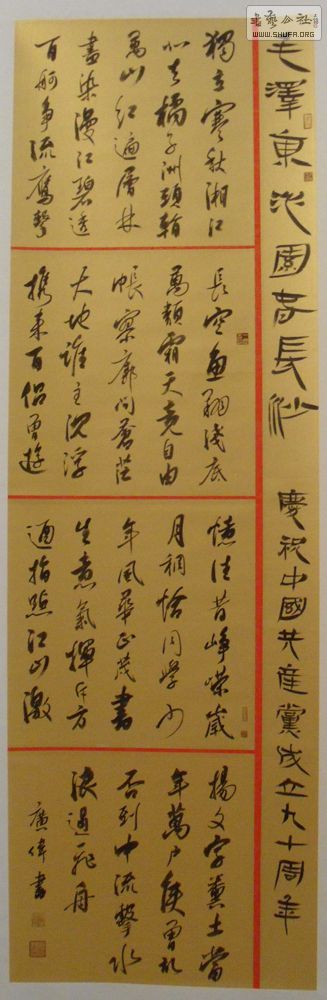 毛澤東沁園春長沙 慶祝中國共產黨成立九十周年
獨立寒秋湘江
北去橘子洲頭看
萬山紅遍層林
盡染漫江碧透
百舸爭流鷹擊
長空魚翔淺底
萬類霜天競自由
悵寥廓問蒼茫
大地誰主沈浮
攜來百侶曾遊
憶往昔崢嶸歲
月稠恰同學少
年風華正茂書
生意氣揮斥方
遒指點江山激
揚文字糞土當
年萬戶侯曾記
否到中流擊水
浪遏飛舟
廣偉書
WWW.SHUFA.ORG